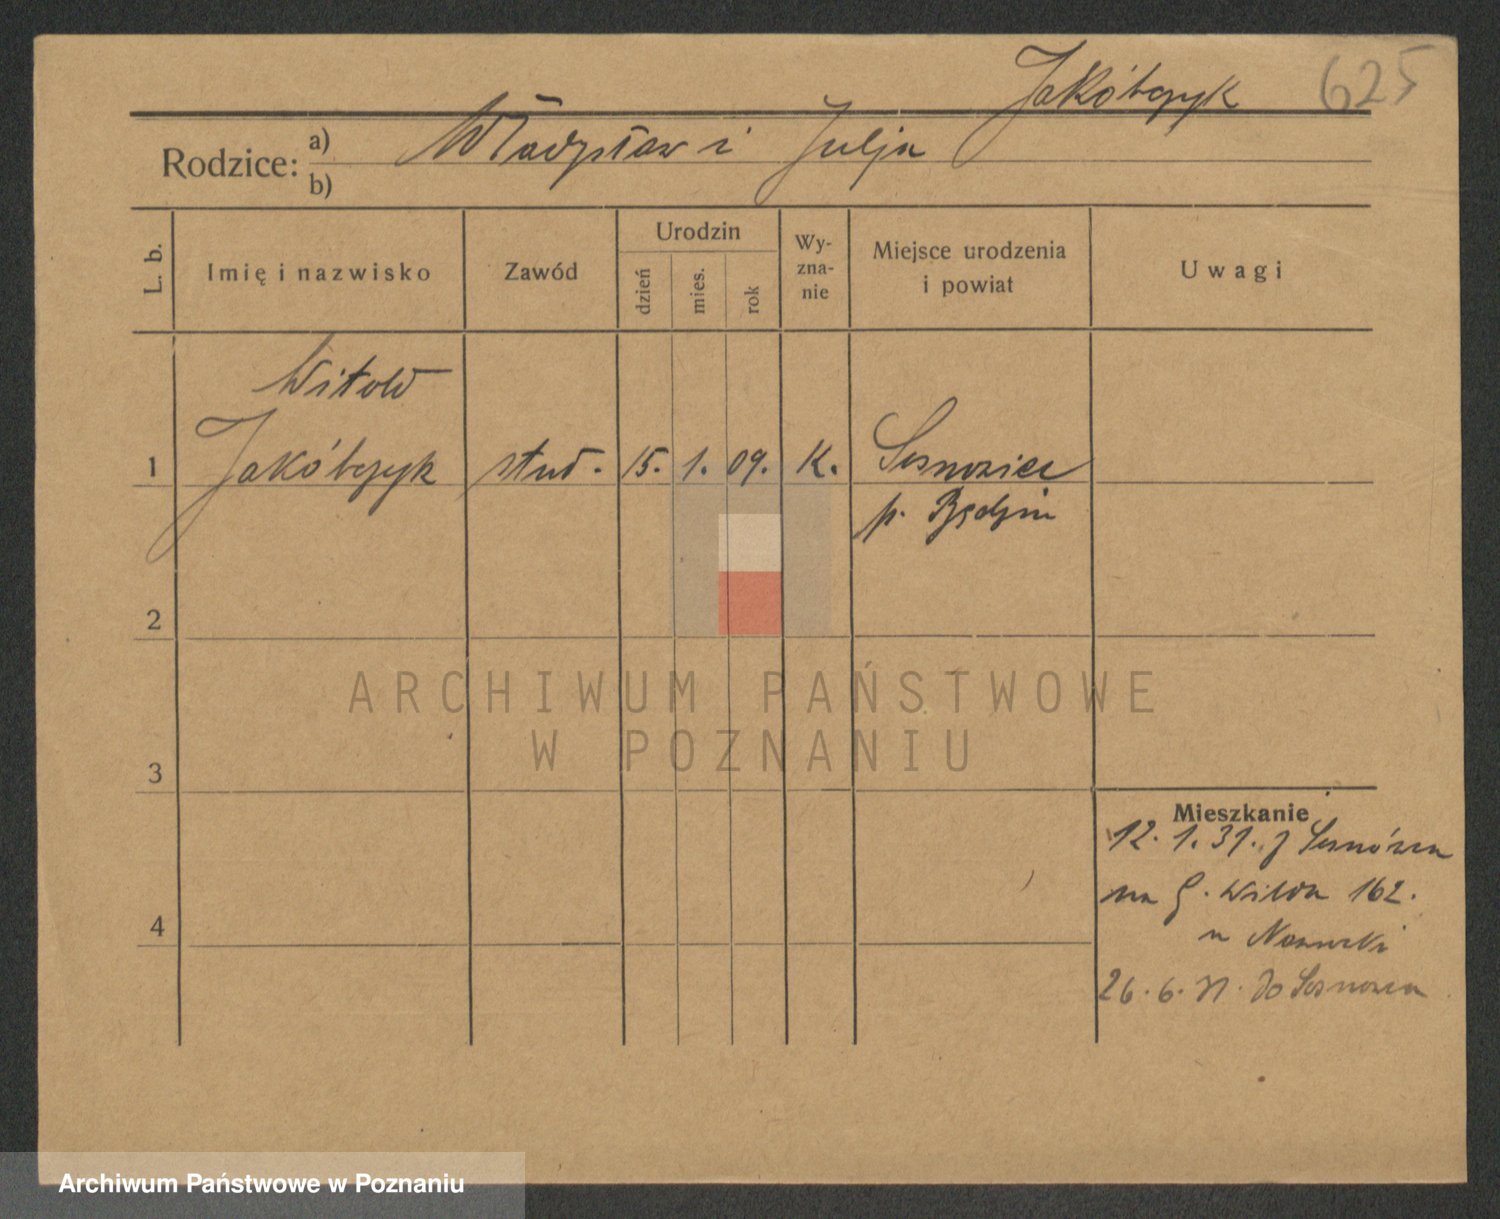 625
Jakóbczyk
Rodzice: a) Władysław i Julja
b)
L. b.
Imię i nazwisko
Zawód
Urodzin
dzień
mies.
rok
Wy-
zna-
nie
Miejsce urodzenia
i powiat
Uwagi
Witold
1 Jakóbczyk stud. 15. 1. 09. K. Sosnowiec
p. Będzin
2
3
4
Mieszkanie
12. 1. 31. z Sosnówca
na G. Wilda 162.
u Nowicki
26. 6. 31. do Sosnowca
ARCHIWUM PAŃSTWOWE
W POZNANIU
Archiwum Państwowe w Poznaniu